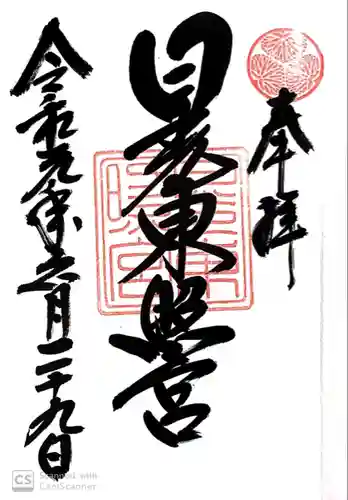 奉拝
日光東照宮
令和元年六月二十九日
CS Scanned with CamScanner